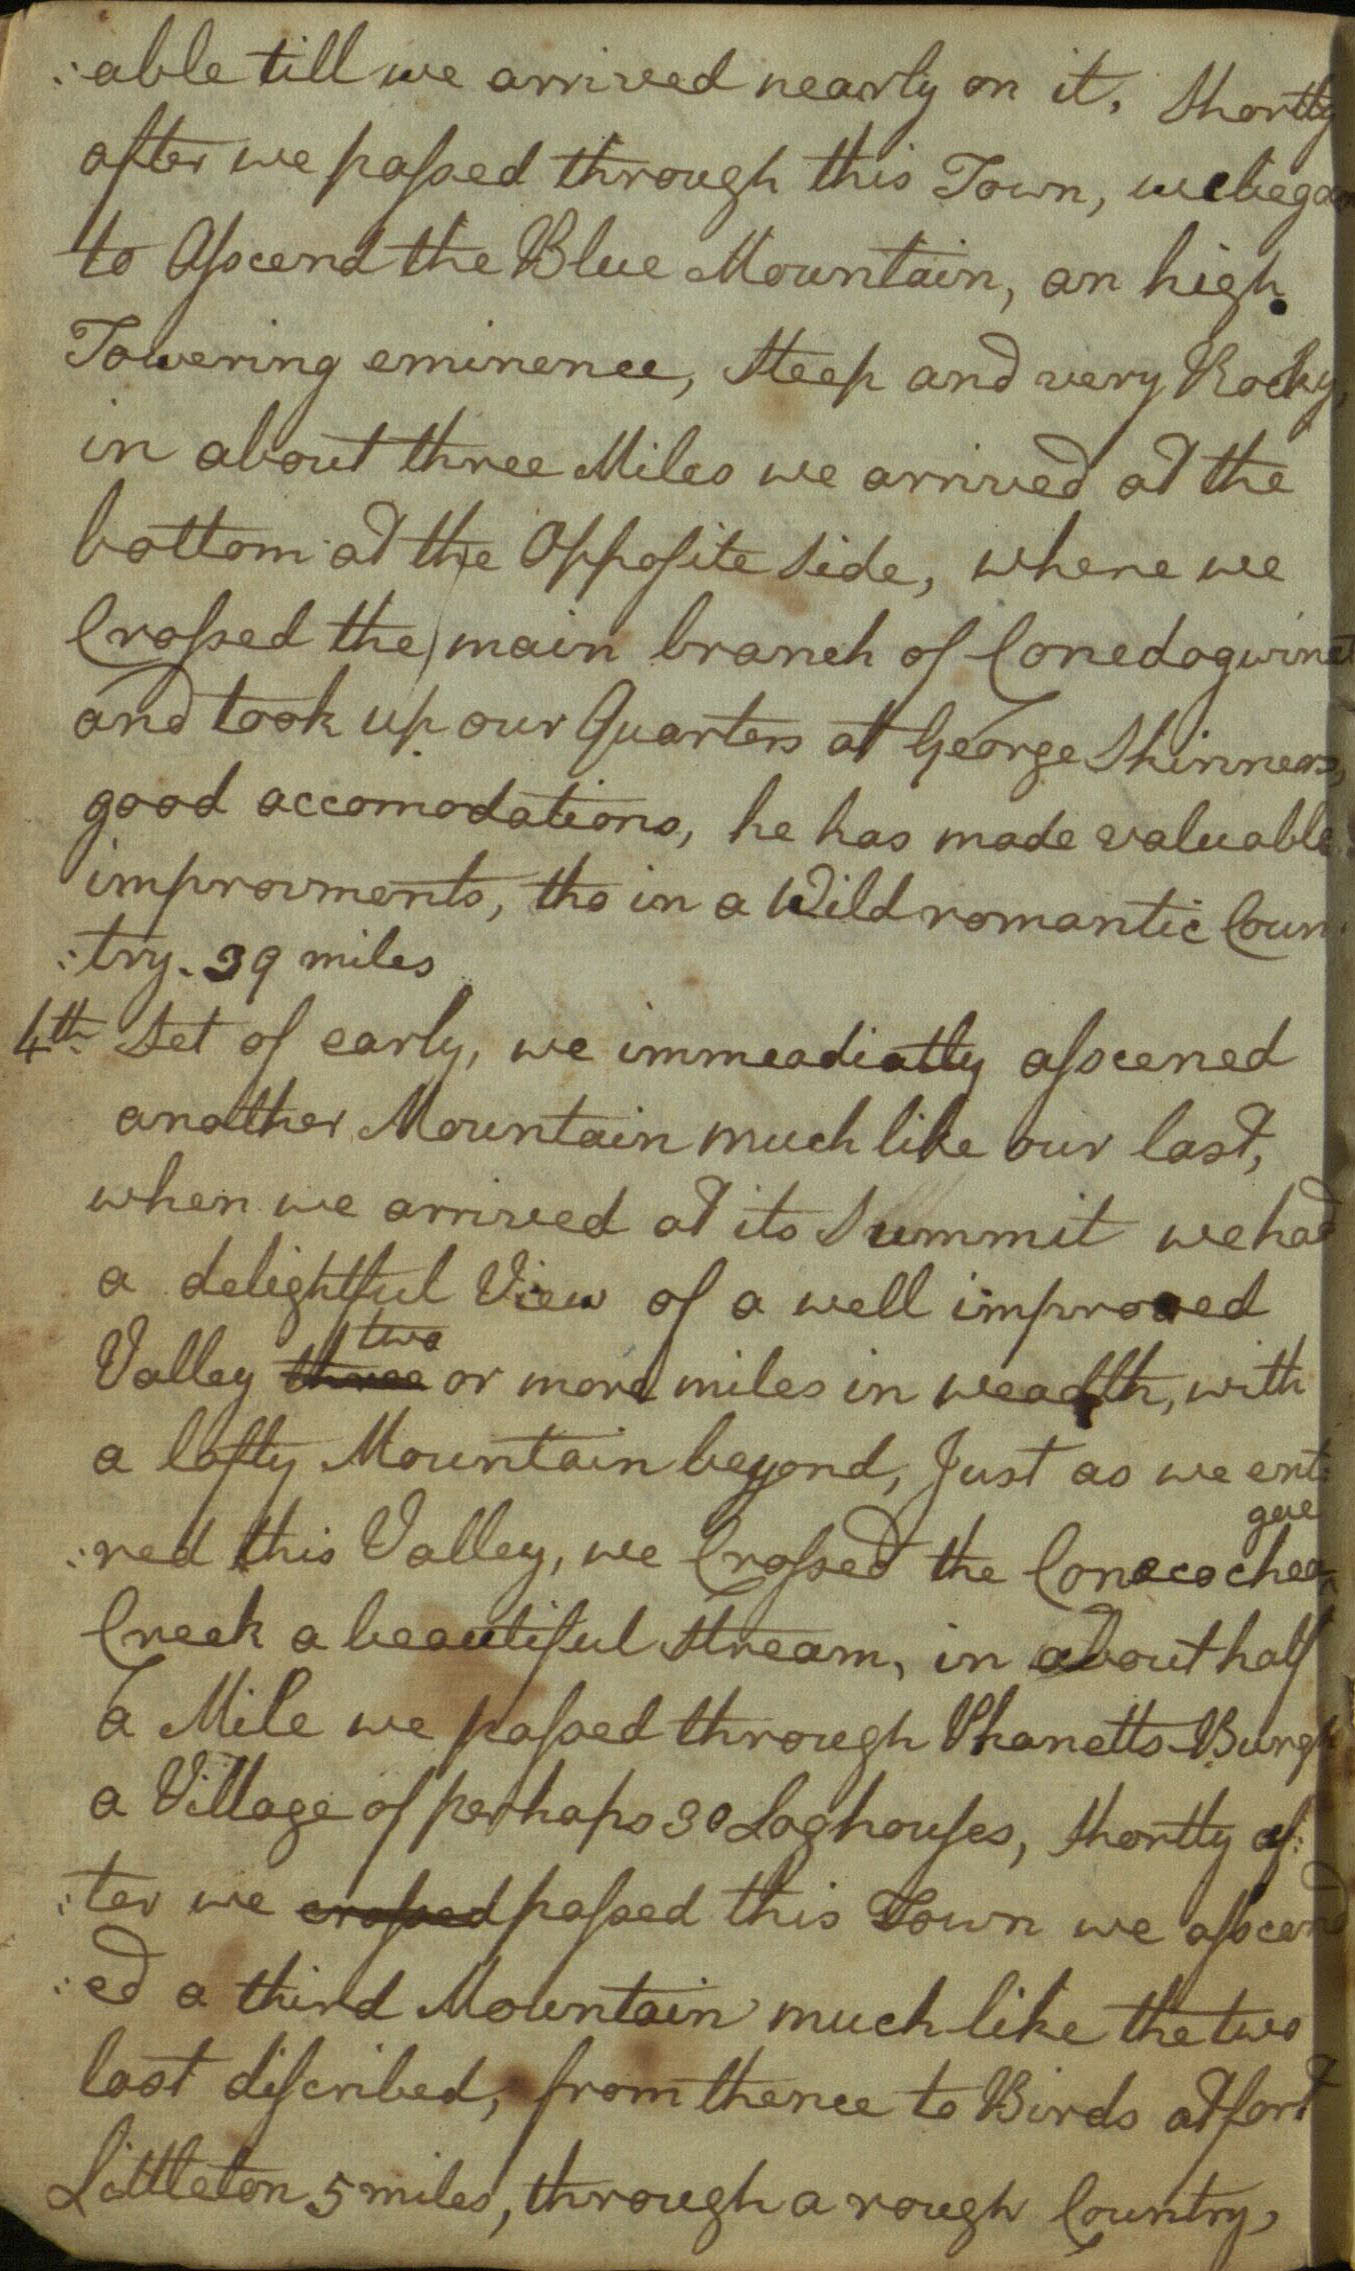 :able till we arrived nearly on it, Shortly
after we passed through this Town, we began
to Asscend the Blue Mountain, an high
Towering eminence, Steep and very Rocky,
in about three Miles we arrived at the
bottom at the Opposite Side, where we
Crossed the main branch of Conedogwinet
and took up our Quarters at George Skinners,
good accomodations, he has made valuable
improvments, tho in a Wild romantic Coun
:try. 39 miles
4th Set of early, we immeadiatly asscened
another Mountain much like our last,
when we arrived at its Summit we had
a delightful View of a well improved
two
Valley three or more miles in weadth, with
a lofty Mountain beyond, Just as we ent:
gue
:red this Valley, we Crossed the Conocochea
Creek a beautiful Stream, in about half
a Mile we passed through Phanetts-Burgh
a Village of perhaps 30 Loghouses, Shortly af:
:ter we crossed passed this Town we asscend
:ed a third Mountain much like the two
last discribed, from thence to Birds at fort
Littleton 5 miles, through a rough Country,